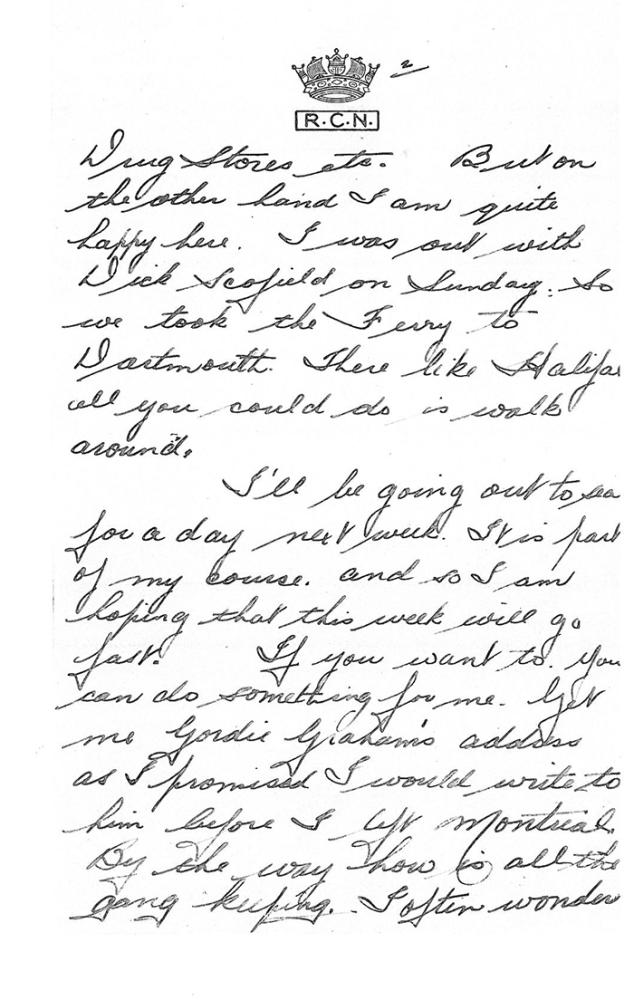 2
R.C.N.
Drug Stores etc. But on
the other hand I am quite
happy here. I was out with
Dick Scofield on Sunday. So
we took the Ferry to
Dartmouth. There like Halifax
all you could do is walk
around.
I'll be going out to sea
for a day next week. It is part
of my course. and so I am
hoping that this week will go
fast. If you want to. You
can do something for me. Get
me Gordie Graham's address
as I promised I would write to
him before I left Montreal.
By the way how is all the
gang keeping. I often wonder